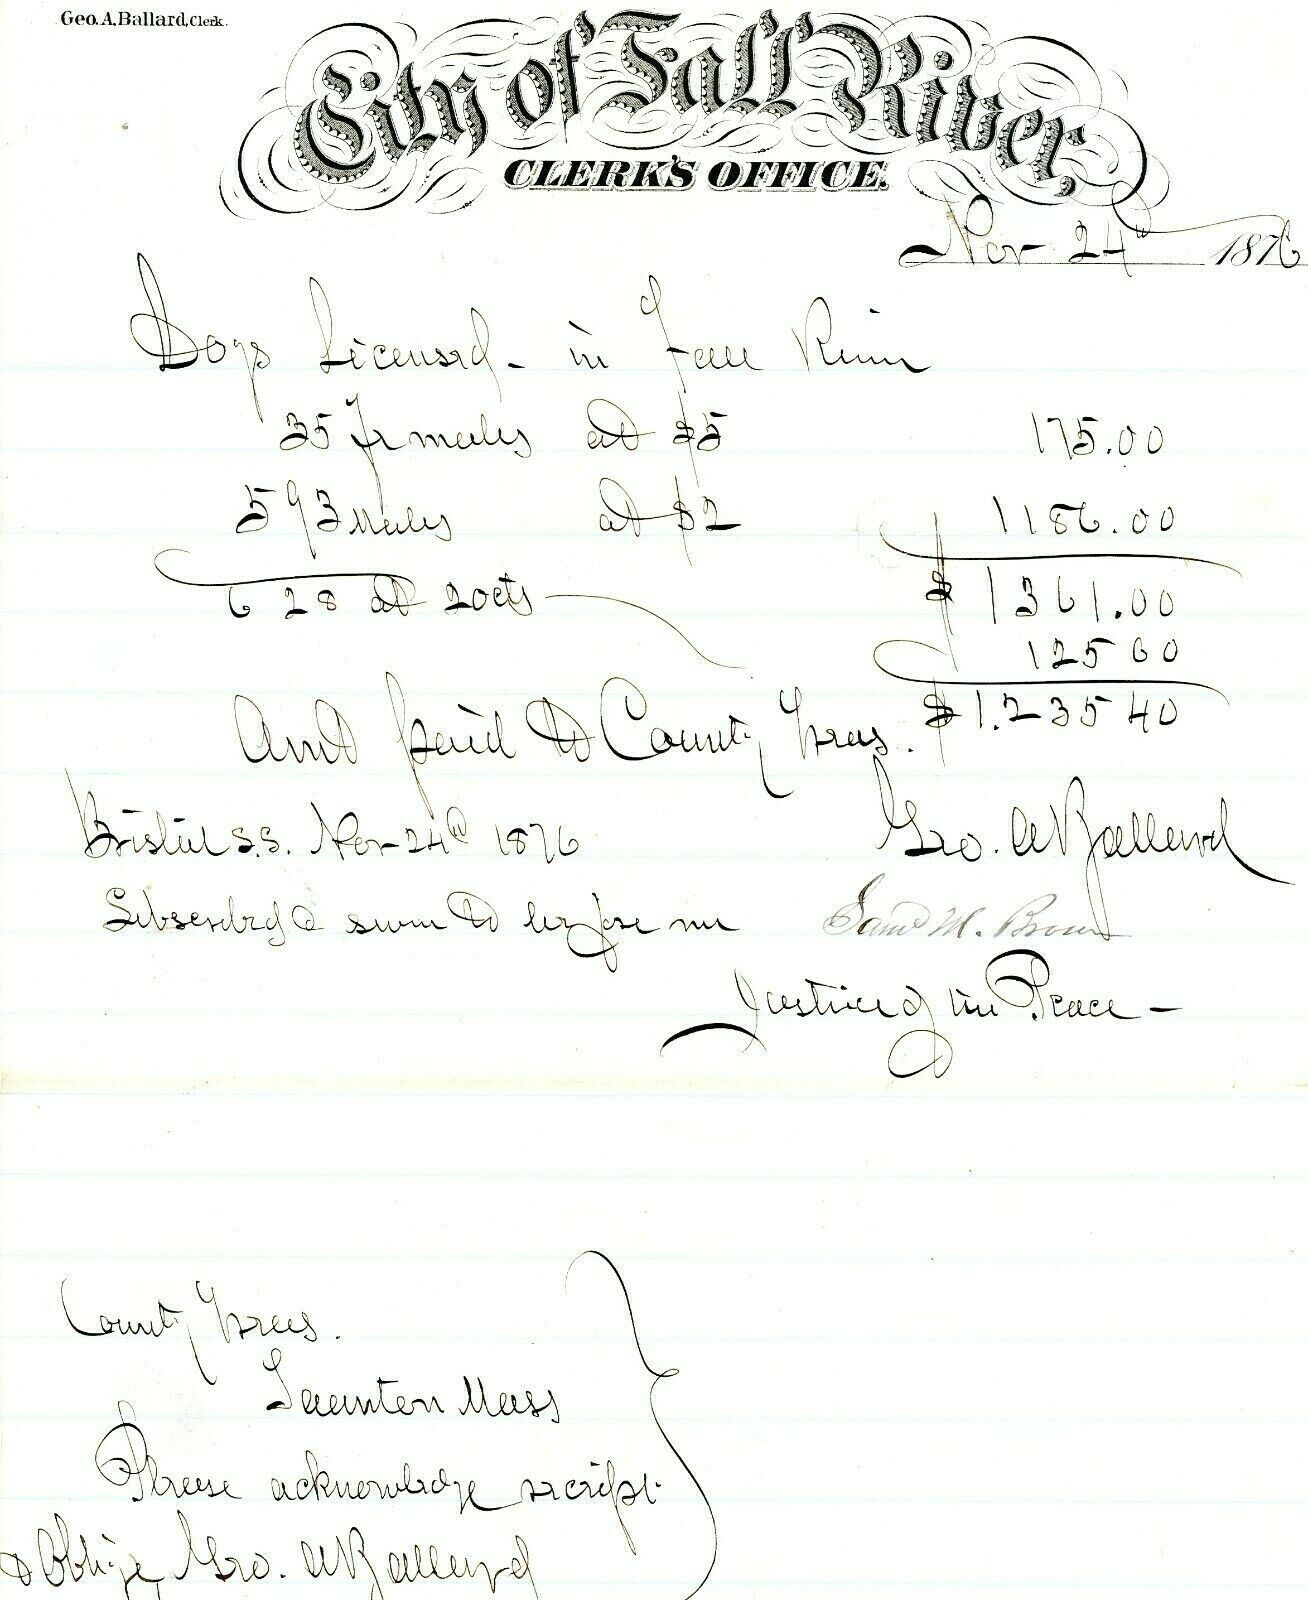 Geo. A. Ballard, Clerk.
City of Fall River,
CLERK'S OFFICE.
Nov 24th 1876
Dogs Licensed - in Fall River
35 Females at $5 175.00
593 Males at $2 1186.00
628 at 20cts $1361.00
125 60
And paid to County Treas. $1.235 40
Bristol S.S. Nov 24th 1876 Geo. A Ballard
Subscribed & sworn to before me Saml M. Brown
Justice of the Peace -
County Treas.
Taunton Mass
Please acknowledge receipt
& Oblige, Geo. A Ballard